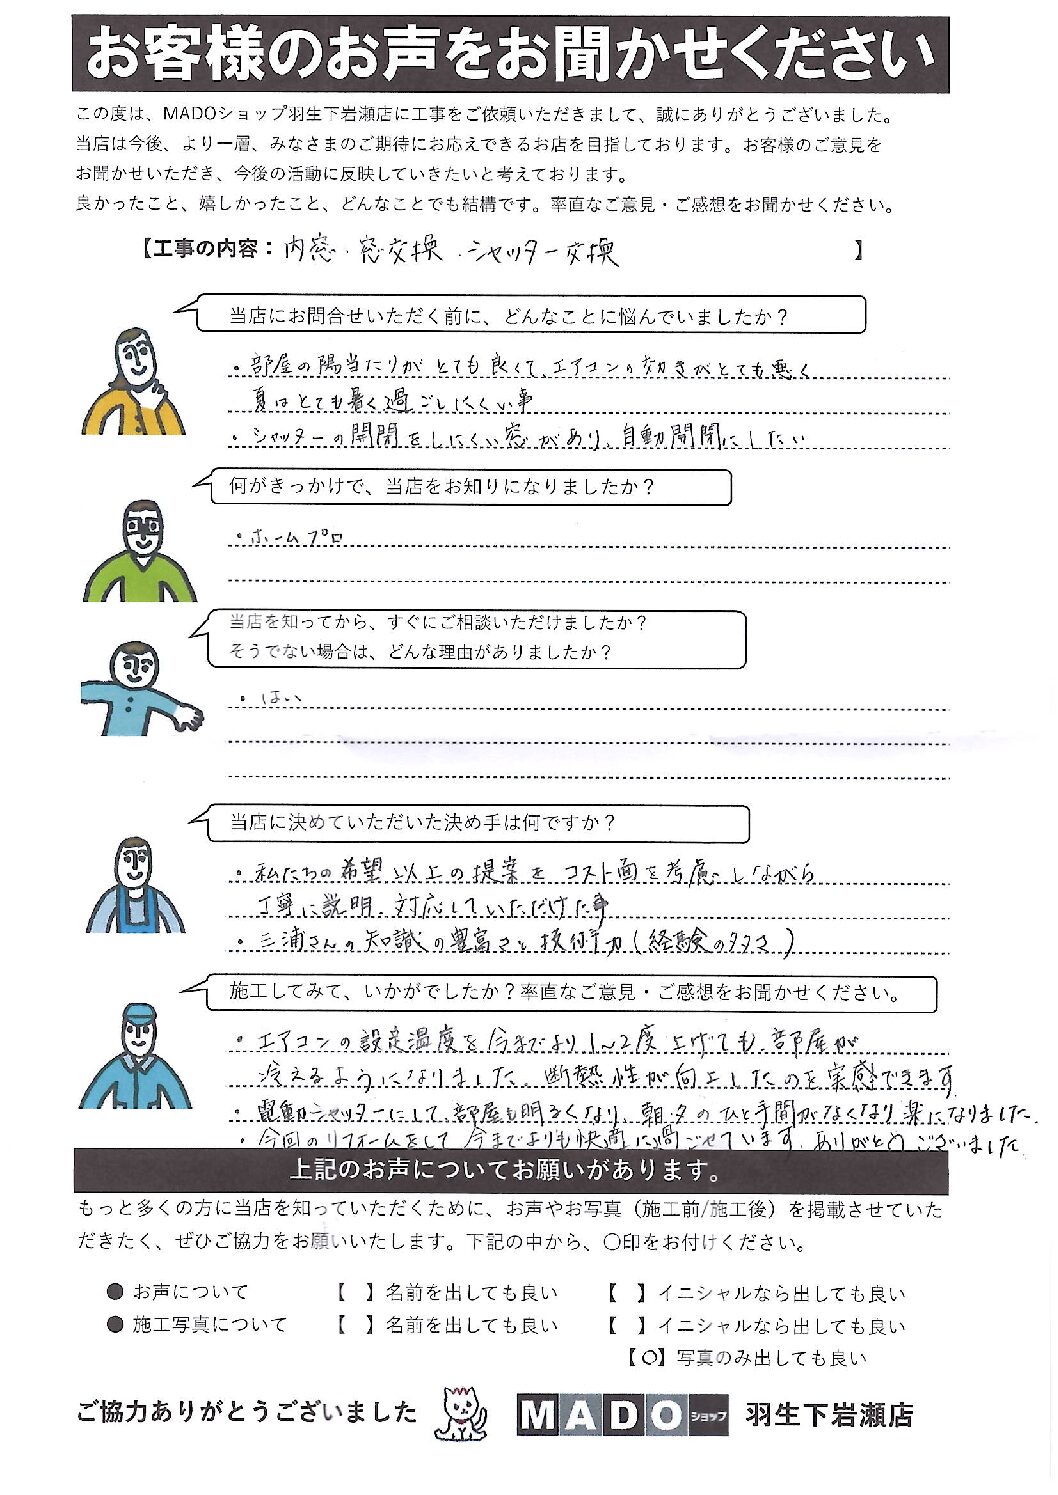 お客様のお声をお聞かせください
この度は、MADOショップ羽生下岩瀬店に工事をご依頼いただきまして、誠にありがとうございました。
当店は今後、より一層、みなさまのご期待にお応えできるお店を目指しております。お客様のご意見を
お聞かせいただき、今後の活動に反映していきたいと考えております。
良かったこと、嬉しかったこと、どんなことでも結構です。率直なご意見・ご感想をお聞かせください。
【工事の内容：内窓・窓交換・シャッター交換】
当店にお問合せいただく前に、どんなことに悩んでいましたか？
・部屋の陽当たりがとても良くて、エアコンの効きがとても悪く
夏はとても暑く過ごしにくい事
・シャッターの開閉をしにくい窓があり、自動開閉にしたい
何がきっかけで、当店をお知りになりましたか？
・ホームプロ
当店を知ってから、すぐにご相談いただけましたか？
そうでない場合は、どんな理由がありましたか？
・はい
当店に決めていただいた決め手は何ですか？
・私たちの希望以上の提案をコスト面を考慮しながら
丁寧に説明、対応していただけた事
・三浦さんの知識の豊富さと技術力(経験の多さ)
施工してみて、いかがでしたか？率直なご意見・ご感想をお聞かせください。
・エアコンの設定温度を今までより1～2度上げても、部屋が
冷えるようになりました。断熱性が向上したのを実感できます
・電動シャッターにして、部屋も明るくなり、朝・夕のひと手間がなくなり楽になりました。
・今回のリフォームをして今までよりも快適に過ごせています。ありがとうございました
上記のお声についてお願いがあります。
もっと多くの方に当店を知っていただくために、お声やお写真（施工前/施工後）を掲載させていた
だきたく、ぜひご協力をお願いいたします。下記の中から、〇印をお付けください。
● お声について 【 】名前を出しても良い 【 】イニシャルなら出しても良い
● 施工写真について 【 】名前を出しても良い 【 】イニシャルなら出しても良い
【〇】写真のみ出しても良い
ご協力ありがとうございました MADOショップ 羽生下岩瀬店